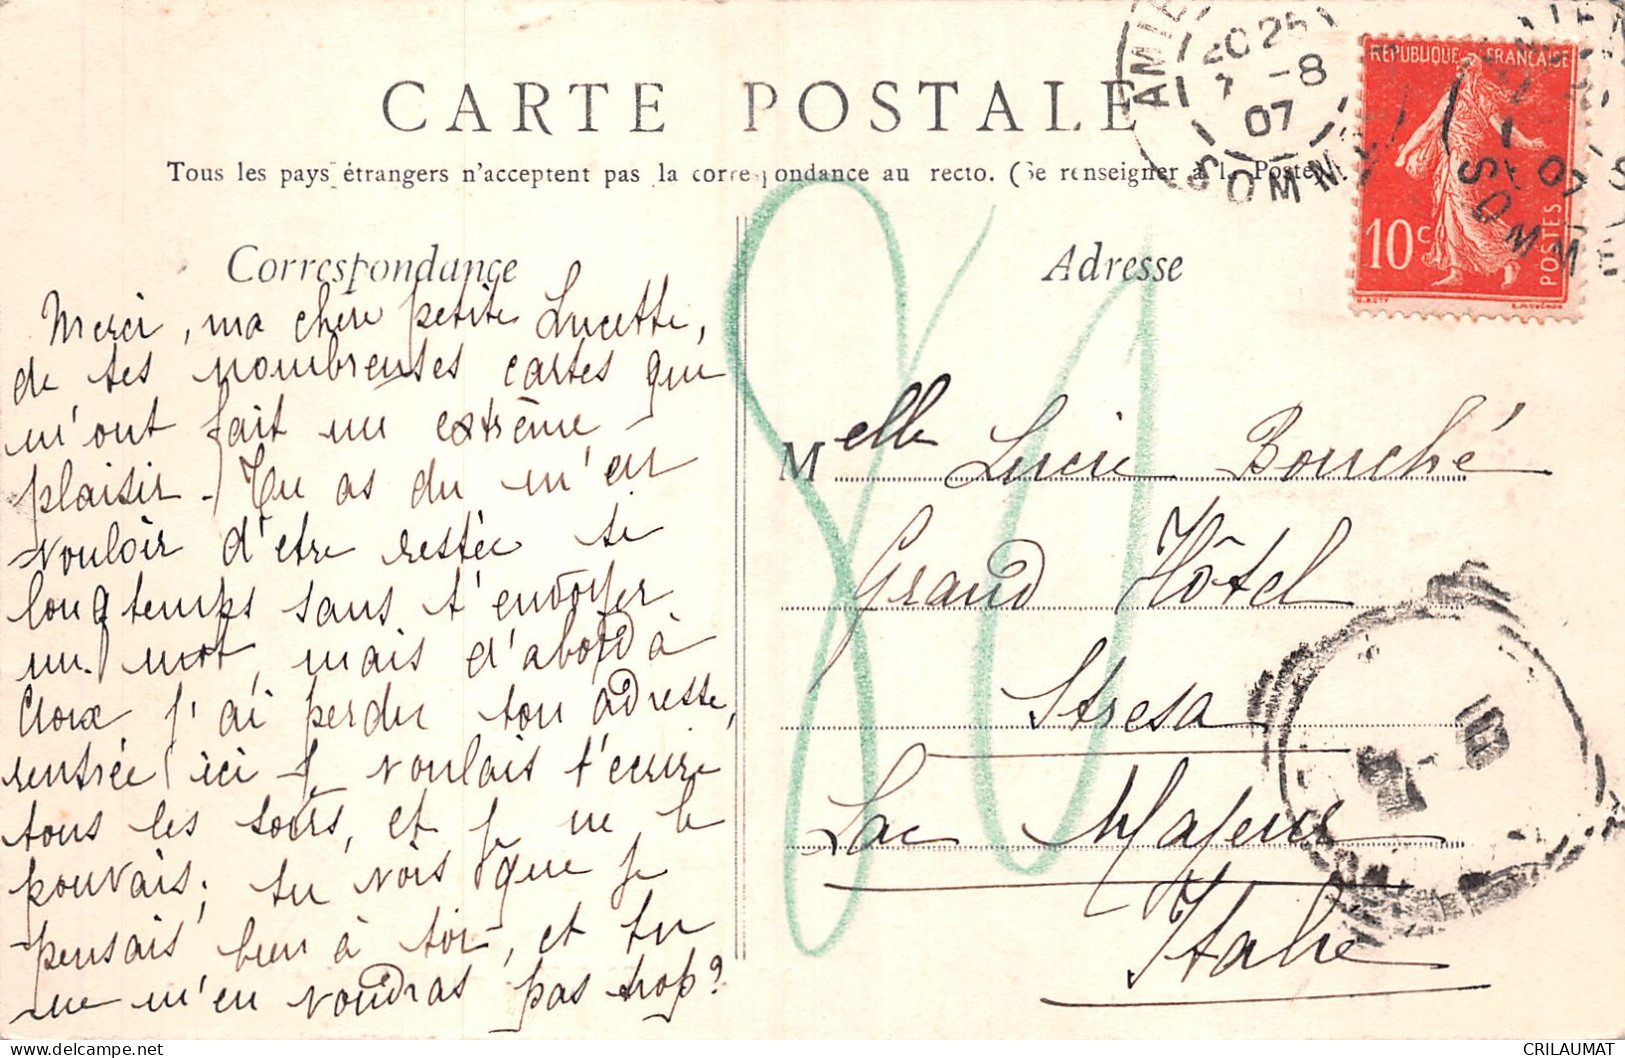 CARTE POSTALE
Tous les pays étrangers n'acceptent pas la correspondance au recto. (Se renseigner à la Poste)
Correspondance
Merci, ma chère petite Lucette,
de tes nombreuses cartes que
m'ont fait un extrême
plaisir - Tu as du m'en
vouloir d'être restée si
longtemps sans t'envoyer
un mot, mais d'abord à
Croix j'ai perdu ton adresse,
rentrée ici je voulais t'écrire
tous les soirs, et je ne le
pouvais; tu vois que je
pensais bien à toi, et tu
ne m'en voudras pas trop?
Adresse
Melle Lucie Bouché
Grand Hôtel
Stresa
Lac Majeur
Italie
80
20 25
7 -8
07
SOMME
REPUBLIQUE FRANÇAISE
10c
POSTES
SOMME
CRILAUMAT